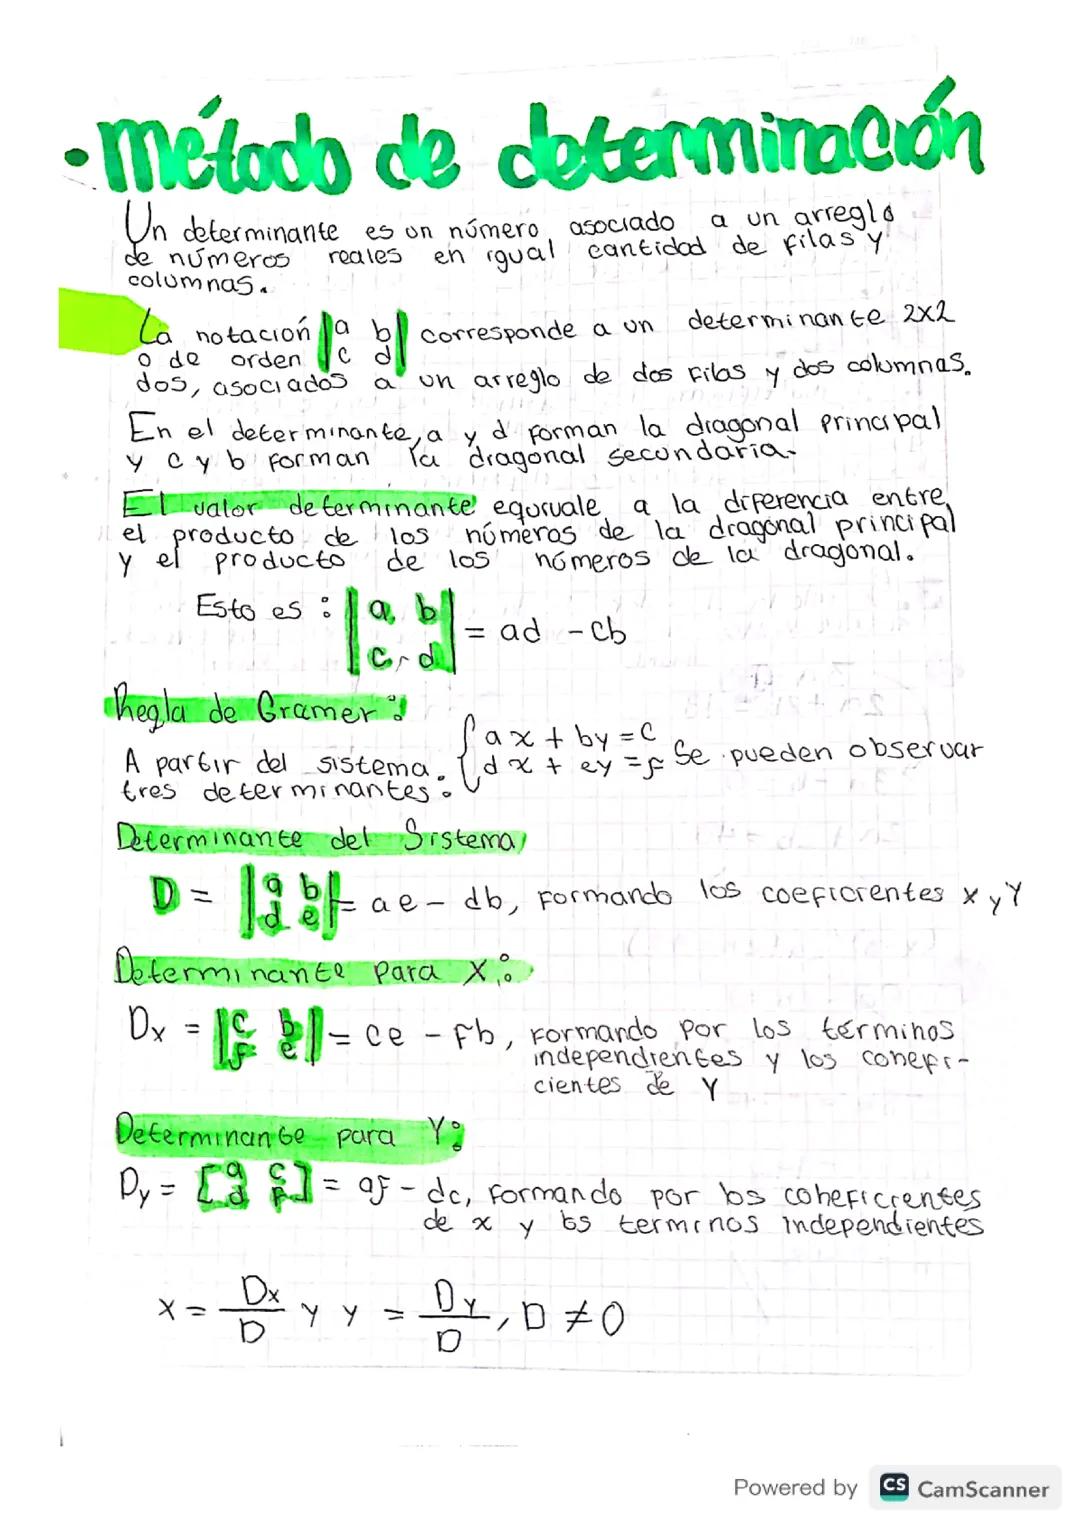 • Método de determinación
Un determinante es un número asociado a un arreglo
de números reales en igual cantidad de filas y
columnas.
La notación |a b| corresponde a un determinante 2x2
o de orden |c d|
dos, asociados a un arreglo de dos filas y dos columnas.
En el determinante, a y d forman la diagonal principal
y c y b forman la diagonal secundaria.
El valor determinante equivale a la diferencia entre
el producto de los números de la diagonal principal
y el producto de los números de la diagonal.
Esto es: |a, b|
|c, d| = ad - cb
Regla de Cramer:
{ax + by = c
A partir del sistema. {dx + ey = f Se pueden observar
tres determinantes:
Determinante del Sistema,
D = |a b|
|d e| = ae - db, Formando los coeficientes x y Y
Determinante para X:
Dx = |c b|
|f e| = ce - fb, Formando por los términos
independientes y los conefi-
cientes de Y
Determinante para Y:
Dy = [a c]
[d f] = af - dc, Formando por los coheficientes
de x y los terminos independientes
x = Dx/D y y = Dy/D, D ≠ 0
Powered by CS CamScanner